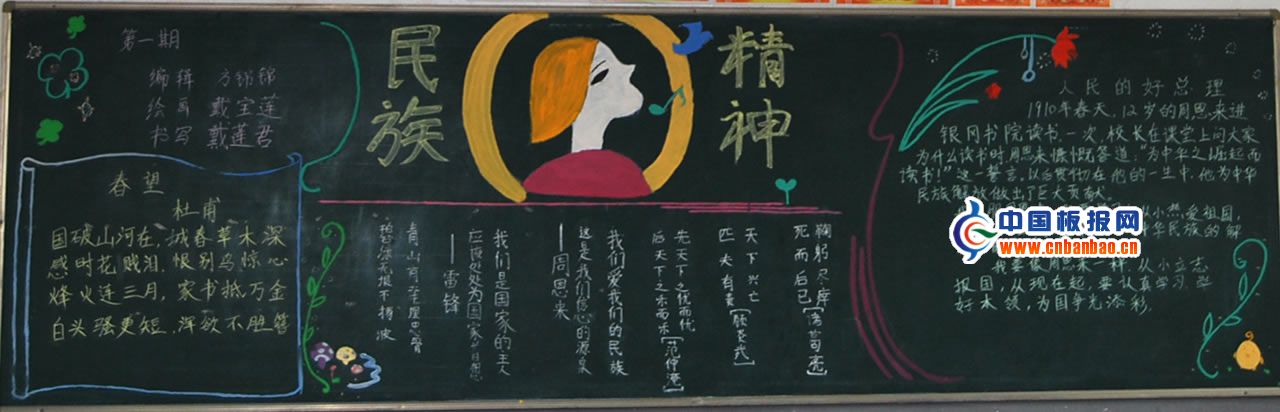 第一期
编辑 方锦锦
绘画 戴宝莲
书写 戴莲君
春望
杜甫
国破山河在，城春草木深
感时花贱泪，恨别鸟惊心
烽火连三月，家书抵万金
白头骚更短，浑欲不胜簪
民族
精神
鞠躬尽瘁
死而后已[诸葛亮]
天下兴亡
匹夫有责[顾炎武]
先天下之忧而忧
后天下之乐而乐[范仲淹]
我们爱我们的民族
这是我们信心的源泉
——周恩来
我们是国家的主人
应该处处为国家着想
——雷锋
青山有幸埋忠骨
人民的好总理
1910年春天，12岁的周恩来进
银冈书院读书，一次，校长在课堂上问大家
为什么读书时，周恩来慷慨答道："为中华之崛起而
读书！"这一誓言，以后贯彻在他的一生中，他为中华
民族解放做出了巨大贡献
小热爱祖国，
华民族的解
我要像周恩来一样，从小立志
报国，从现在起，要认真学习，学
好本领，为国争光添彩。
中国板报网
www.cnbanbao.cn